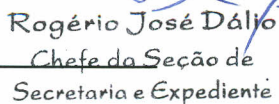 Rogério José Dálio
Chefe da Seção de
Secretaria e Expediente